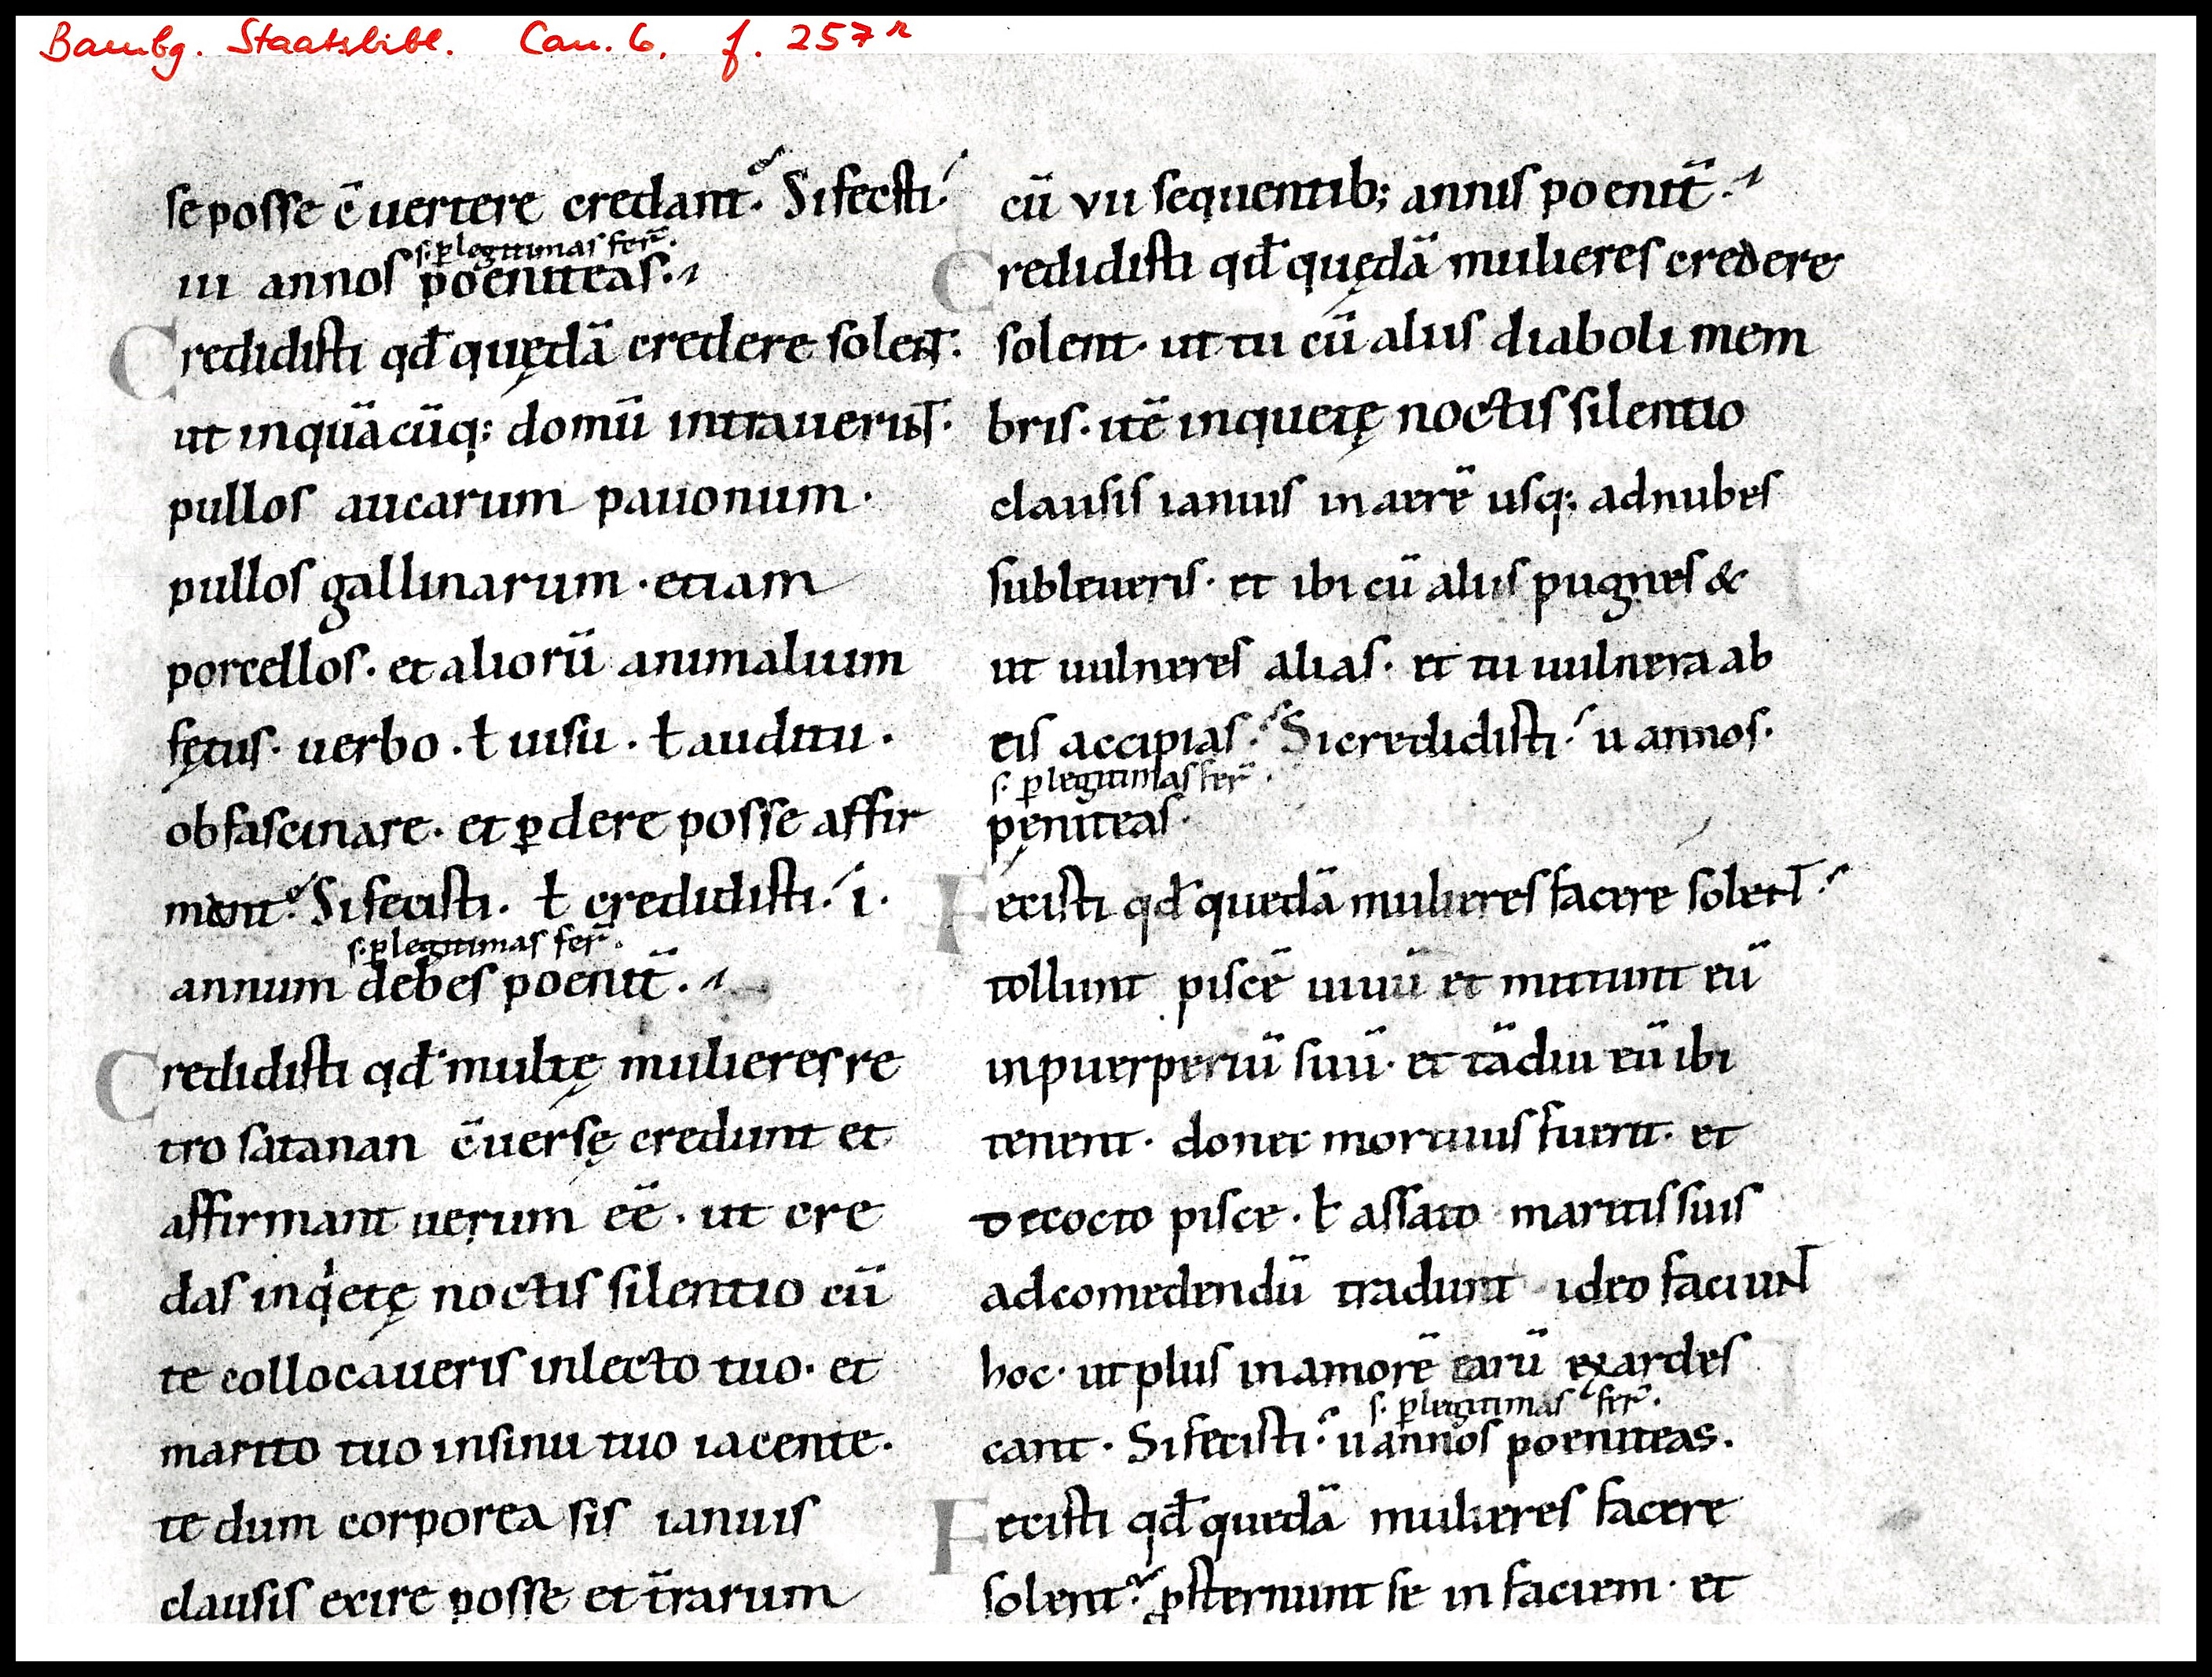 Bambg. Staatsbibl. Can. 6, f. 257r
se posse c̄uertere credant. Si fecisti
s. ꝑ legitimas fer̄.
iii annos poeniteas.
Credidisti qđ quędā credere solent.
ut in quācūq; domū intrauerint.
pullos aucarum pauonum.
pullos gallinarum. etiam
porcellos. et aliorū animalium
fętus. uerbo. ł uisu. ł auditu.
obfascinare. et ꝑdere posse affir
ment. Si fecisti. ł credidisti. i.
s. ꝑ legitimas fer̄.
annum debes poenit̄.
Credidisti qđ multę mulieres re
tro satanan c̄uersę credunt et
affirmant uerum eē. ut cre
das inqͥetę noctis silentio cū
te collocaueris in lecto tuo. et
marito tuo in sinu tuo iacente.
te dum corporea sis ianuis
clausis exire posse et t̄rarum
cū vii sequentib; annis poenit̄.
Credidisti qđ quędā mulieres credere
solent. ut tu cū aliis diaboli mem
bris. itē in quietę noctis silentio
clausis ianuis in aerē usq; ad nubes
subleueris. et ibi cū aliis pugnes &
ut uulneres alias. et tu uulnera ab
eis accipias. Si credidisti u annos.
s. ꝑ legitimas fer̄.
pęniteas.
Fecisti qđ quedā mulieres facere solent.
tollunt piscē uiuū et mittunt eū
in puerperiū suū. et tādiu eū ibi
tenent. donec mortuus fuerit. et
decocto pisce. ł assato maritis suis
ad comedendū tradunt ideo faciunt
hoc. ut plus in amorē earū exardes
s. ꝑ legitimas fer̄.
cant. Si fecisti u annos poeniteas.
Fecisti qđ quedā mulieres facere
solent. ꝓsternunt se in faciem. et